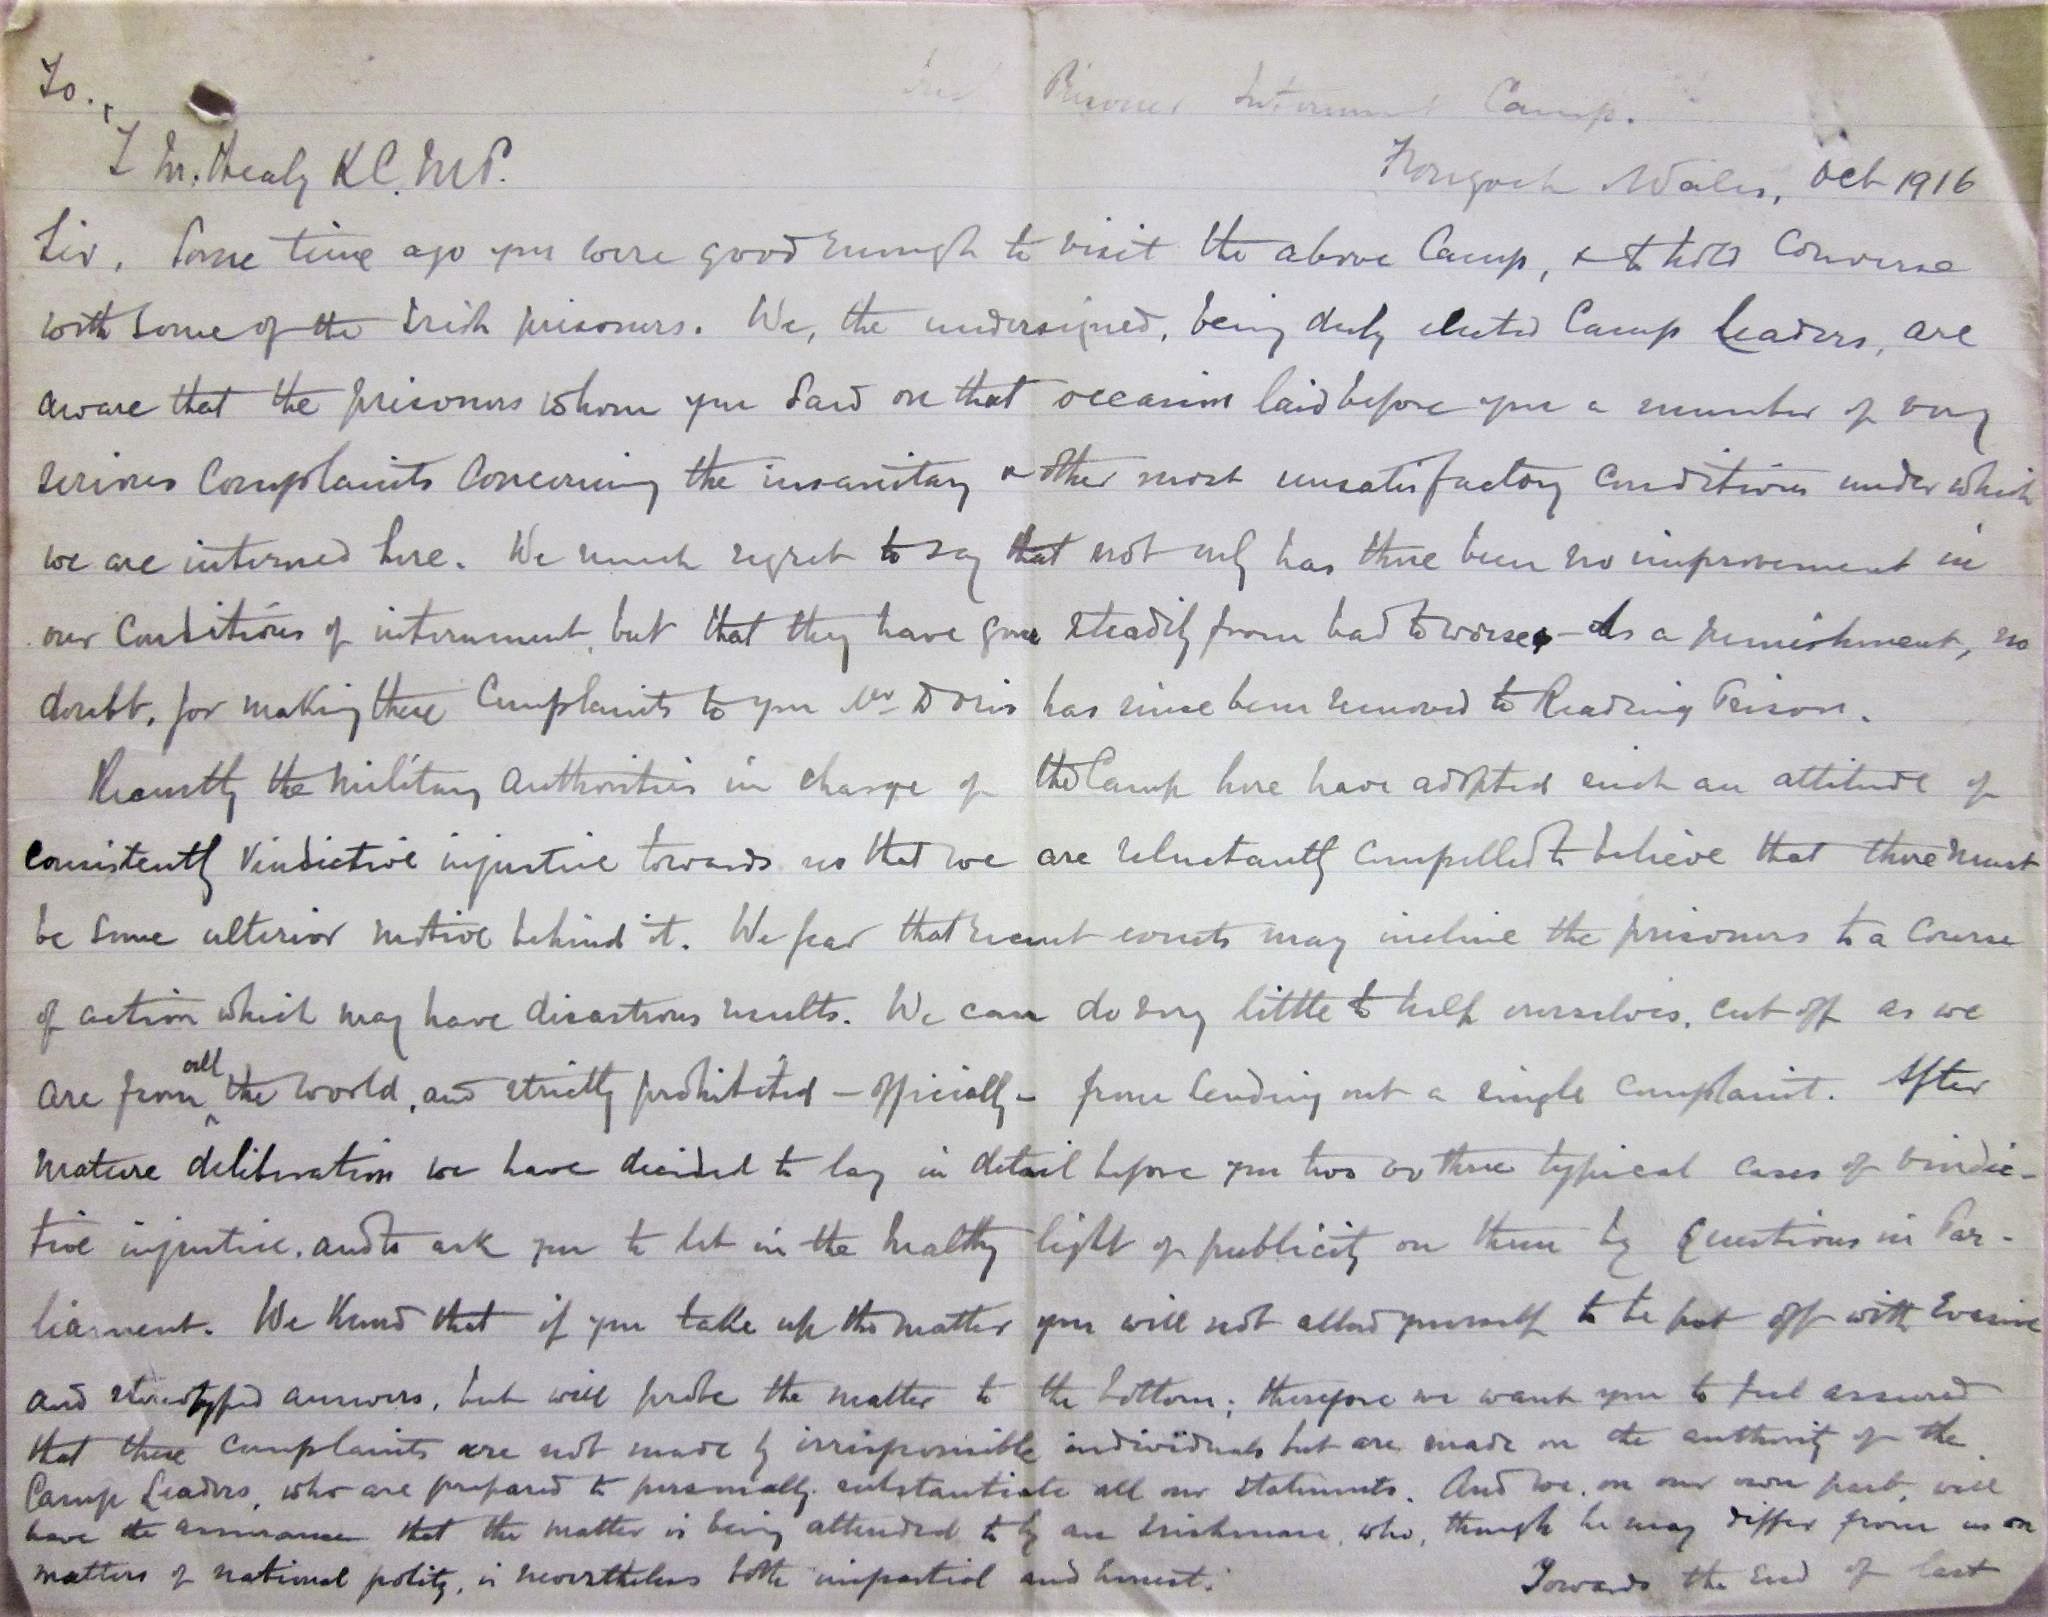 To.,
Irish Prisoner Internment Camp.
T M. Healy K C. M P.
Frongoch Wales, Oct 1916
Sir, Some time ago you were good enough to visit the above Camp, & to hold converse
with some of the Irish prisoners. We, the undersigned, being duly elected Camp Leaders, are
aware that the prisoners whom you saw on that occasion laid before you a number of very
serious complaints concerning the insanitary & other most unsatisfactory conditions under which
we are interned here. We much regret to say that not only has there been no improvement in
our conditions of internment, but that they have gone steadily from bad to worse - As a punishment, no
doubt, for making these complaints to you Mr Doris has since been removed to Reading Prison.
Recently the military authorities in charge of the Camp here have adopted such an attitude of
consistently vindictive injustice towards us that we are reluctantly compelled to believe that there must
be some ulterior motive behind it. We fear that recent events may incline the prisoners to a course
of action which may have disastrous results. We can do very little to help ourselves, cut off as we
are from all the world, and strictly prohibited - officially - from sending out a single complaint. After
mature deliberation we have decided to lay in detail before you two or three typical cases of vindic-
tive injustice, and to ask you to let in the healthy light of publicity on them by Questions in Par-
liament. We know that if you take up the matter you will not allow yourself to be put off with evasive
and stereotyped answers, but will probe the matter to the bottom; therefore we want you to feel assured
that these complaints are not made by irresponsible individuals but are made on the authority of the
Camp Leaders, who are prepared to personally substantiate all our statements. And we, on our own part, will
have the assurance that the matter is being attended to by an Irishman, who, though he may differ from us on
matters of national polity, is nevertheless both impartial and honest. Towards the end of last